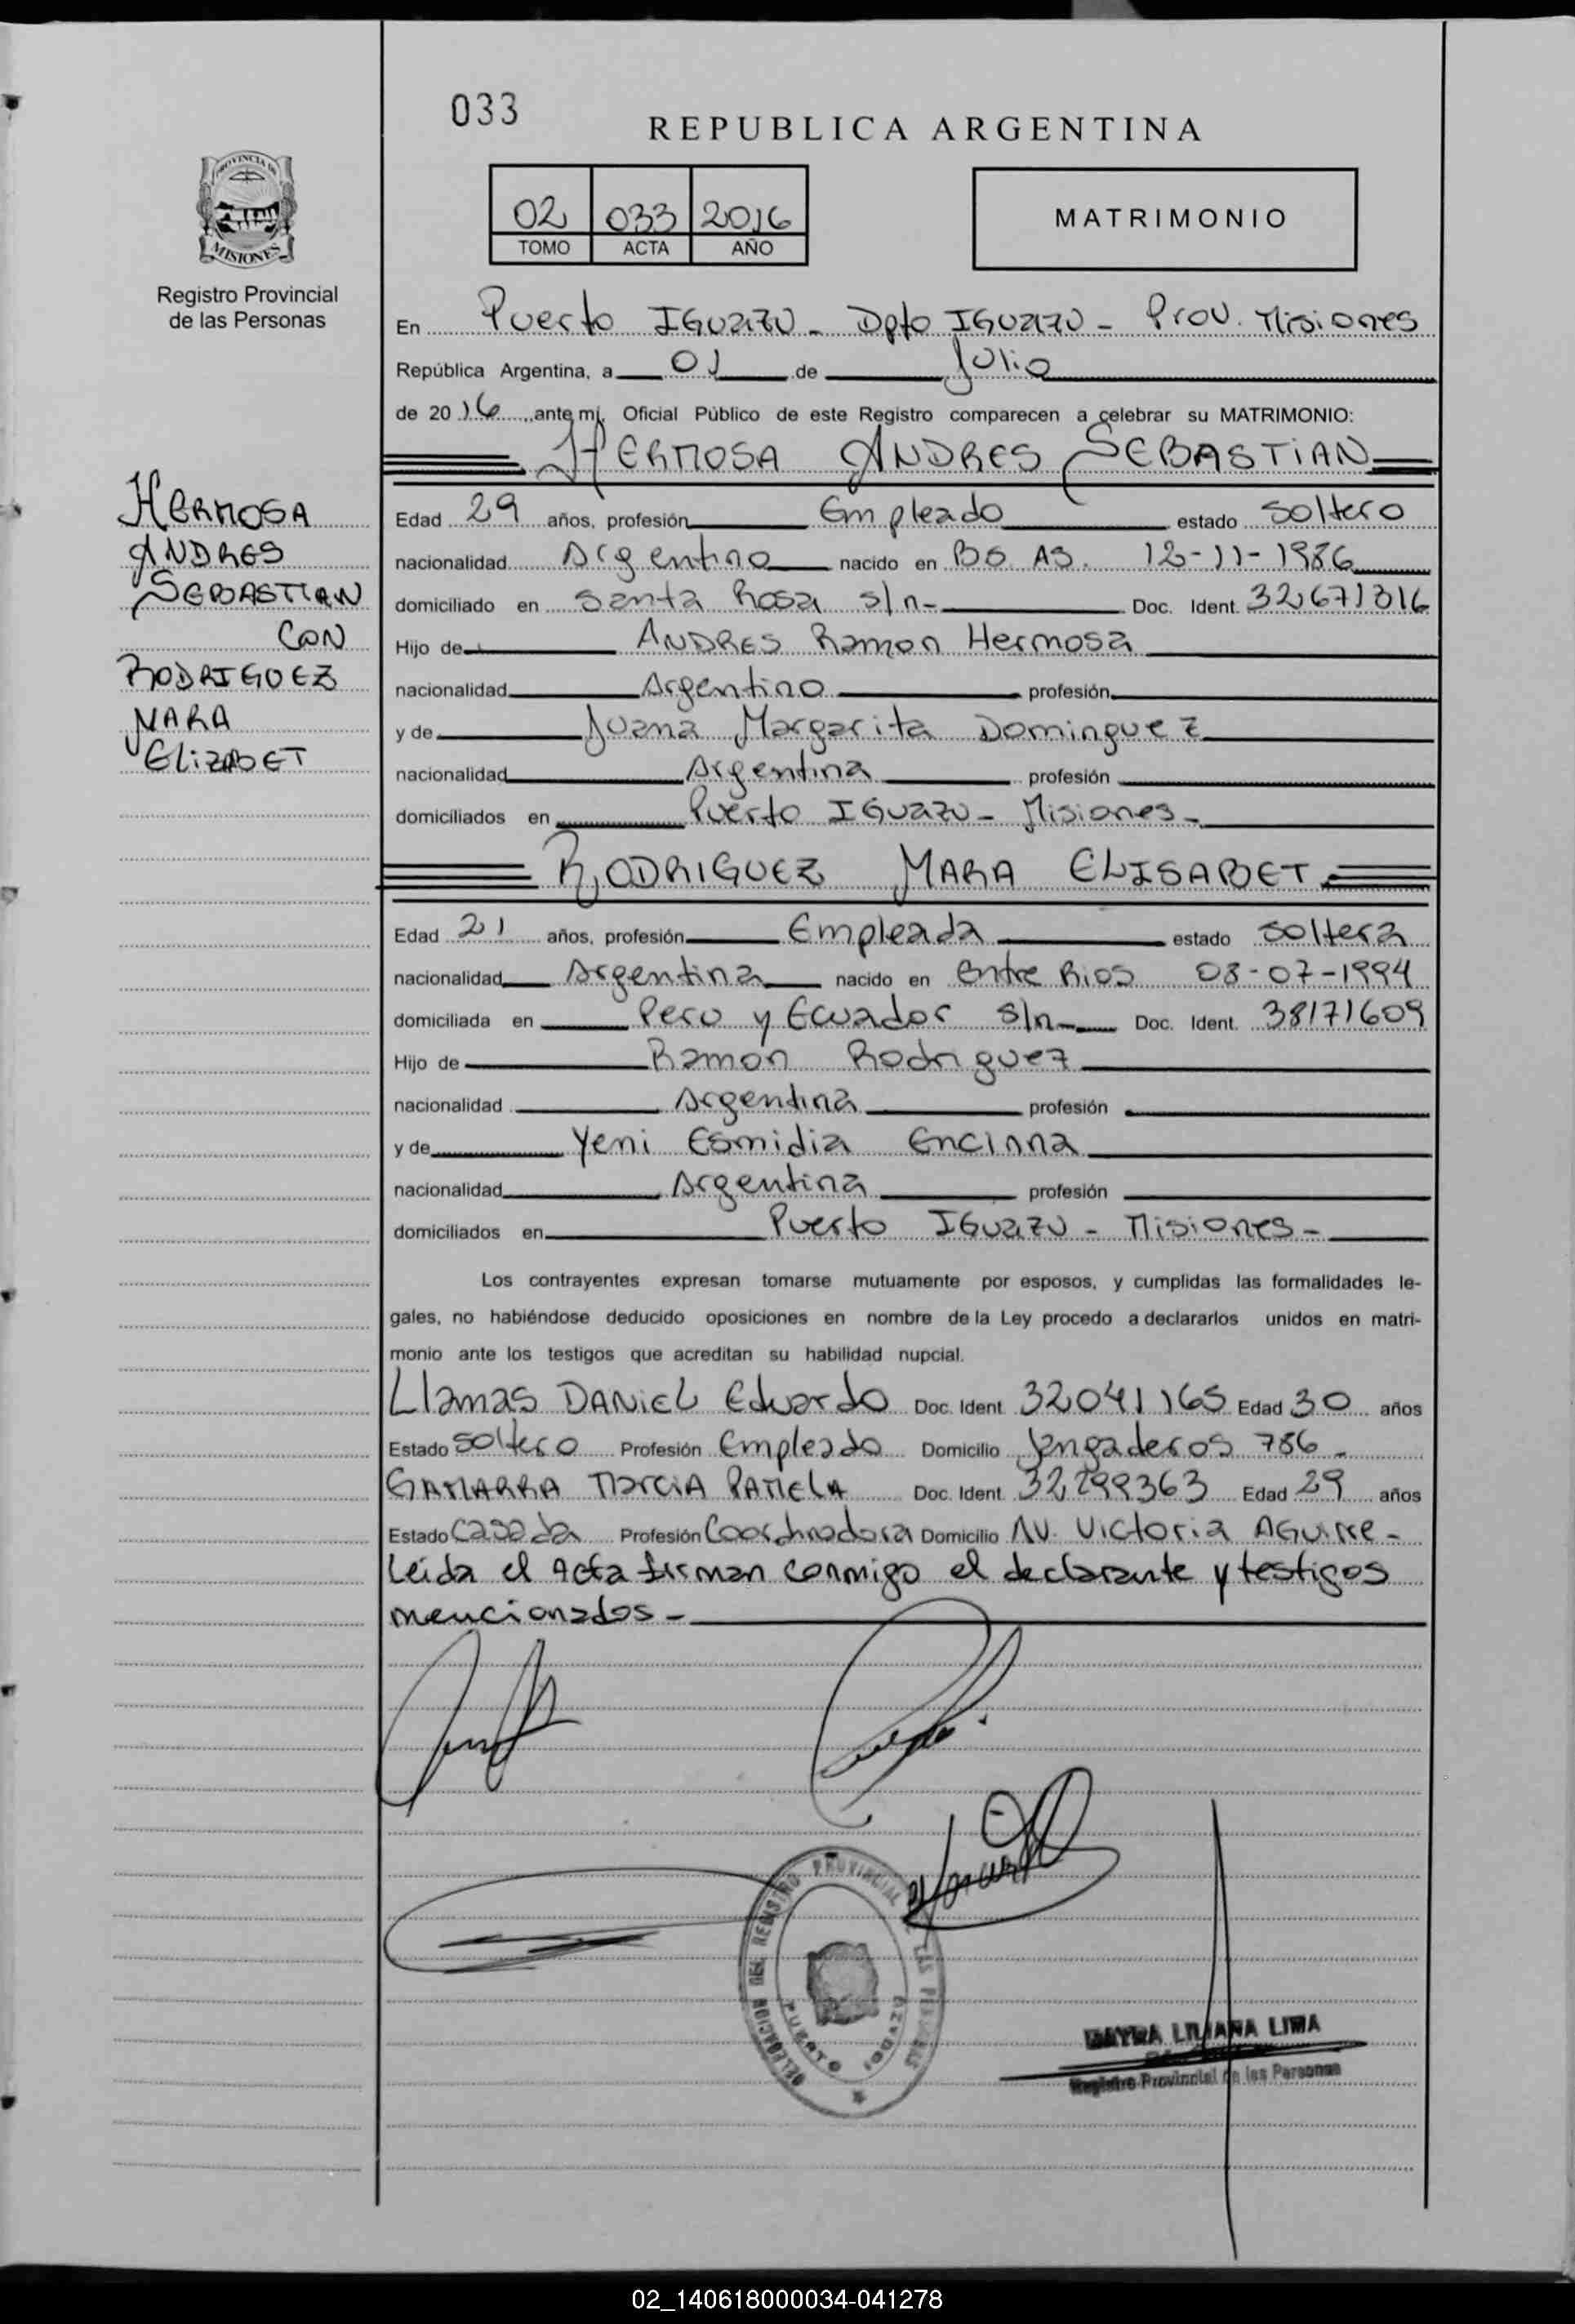 033
REPUBLICA ARGENTINA
PROVINCIA DE
MISIONES
Registro Provincial
de las Personas
02 033 2016
TOMO ACTA AÑO
MATRIMONIO
En Puerto IGuazu - Dpto IGuazu - Prov. Misiones
República Argentina, a 01 de Julio
de 2016, ante mi, Oficial Público de este Registro comparecen a celebrar su MATRIMONIO:
HERMOSA ANDRES SEBASTIAN
HERMOSA
ANDRES
SEBASTIAN
CON
RODRIGUEZ
MARA
ELIZABET
Edad 29 años, profesión Empleado estado soltero
nacionalidad Argentino nacido en BS. AS. 12-11-1986
domiciliado en Santa Rosa s/n- Doc. Ident. 32671316
Hijo de ANDRES Ramon Hermosa
nacionalidad Argentino profesión
y de Juana Margarita Dominguez
nacionalidad Argentina profesión
domiciliados en Puerto IGuazu - Misiones -
RODRIGUEZ MARA ELISABET
Edad 21 años, profesión Empleada estado soltera
nacionalidad Argentina nacido en Entre Rios 08-07-1994
domiciliada en Peru y Ecuador s/n- Doc. Ident. 38171609
Hijo de Ramon Rodriguez
nacionalidad Argentina profesión
y de Yeni Esmidia Encinna
nacionalidad Argentina profesión
domiciliados en Puerto IGuazu - Misiones -
Los contrayentes expresan tomarse mutuamente por esposos, y cumplidas las formalidades le-
gales, no habiéndose deducido oposiciones en nombre de la Ley procedo a declararlos unidos en matri-
monio ante los testigos que acreditan su habilidad nupcial.
Llamas DANIEL Eduardo Doc. Ident. 32041165 Edad 30 años
Estado soltero Profesión Empleado Domicilio Jangaderos 786 -
GAMARRA MarciA PAMELA Doc. Ident. 32299363 Edad 29 años
Estado Casada Profesión Coordinadora Domicilio AV. Victoria AGuirre -
Leida el Acta firman conmigo el declarante y testigos
mencionados -
DELEGACION DEL REGISTRO PROVINCIAL DE LAS PERSONAS
PUERTO IGUAZU
MAYRA LILIANA LIMA
Registro Provincial de las Personas
02_140618000034-041278